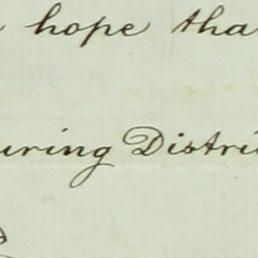 hope tha
uring Distri